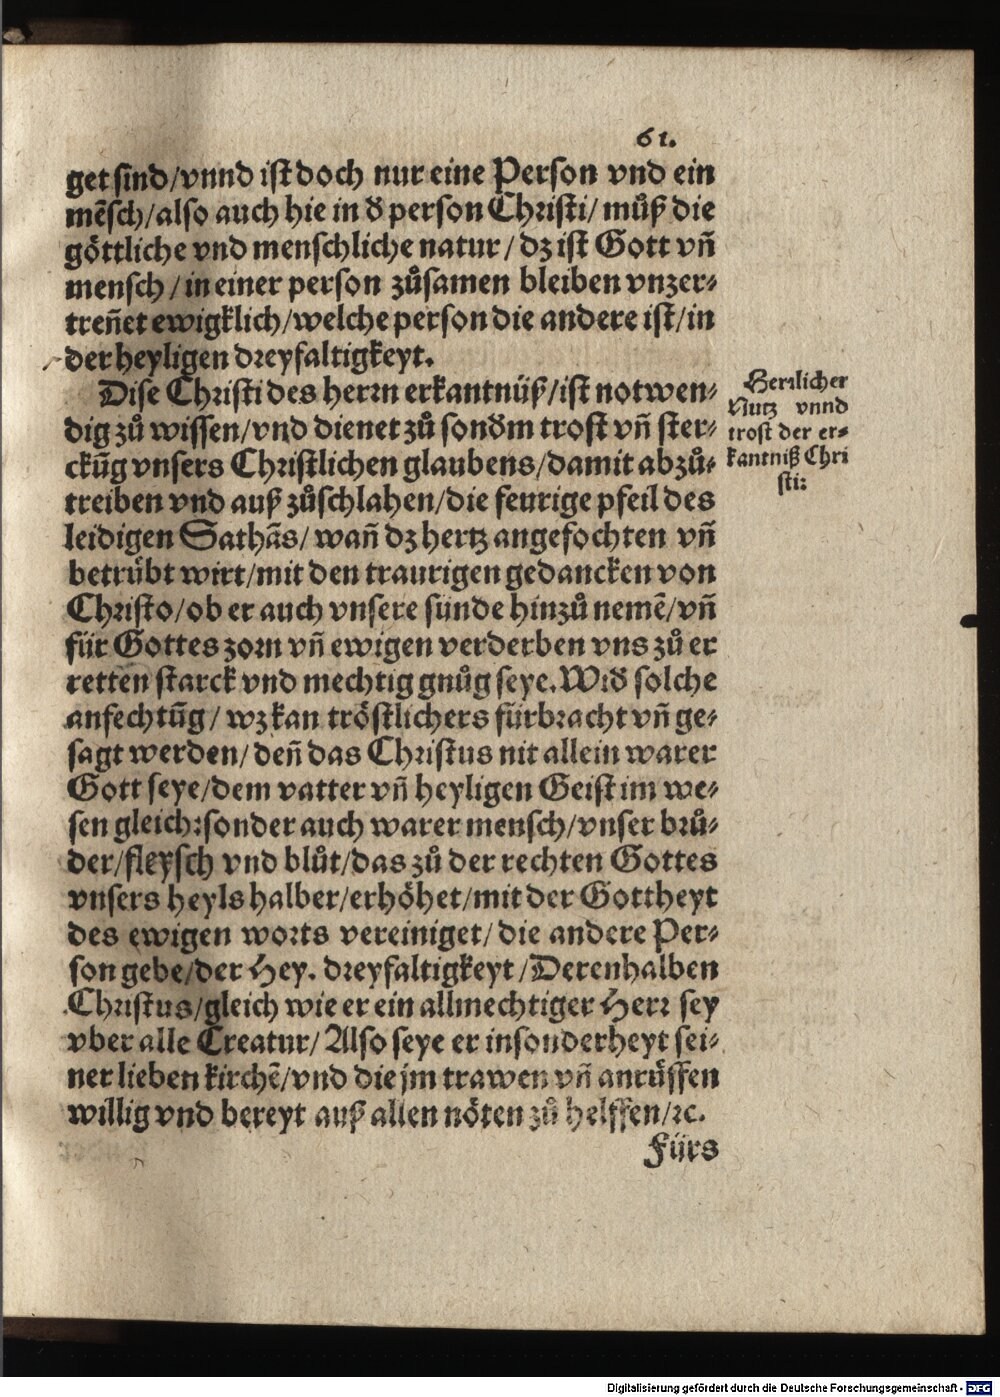 61.
get sind/vnnd ist doch nur eine Person vnd ein
mẽsch/also auch hie in d̕ person Christi/ můß die
göttliche vnd menschliche natur/ dz ist Gott vñ
mensch/in einer person zůsamen bleiben vnzer⸗
treñet ewigklich/welche person die andere ist/in
der heyligen dreyfaltigkeyt.
Dise Christi des herrn erkantnüß/ist notwen⸗
dig zů wissen/vnd dienet zů sond̕m trost vñ ster⸗
ckũg vnsers Christlichen glaubens/damit abzů⸗
treiben vnd auß zůschlahen/die feurige pfeil des
leidigen Sathãs/ wañ dz hertz angefochten vñ
betrübt wirt/mit den traurigen gedancken von
Christo/ob er auch vnsere sünde hinzů nemẽ/vñ
für Gottes zorn vñ ewigen verderben vns zů er
retten starck vnd mechtig gnůg seye. Wid̕ solche
anfechtũg/ wz kan tröstlichers fürbracht vñ ge⸗
sagt werden/ deñ das Christus nit allein warer
Gott seye/dem vatter vñ heyligen Geist im we⸗
sen gleich:sonder auch warer mensch/vnser brů⸗
der/fleysch vnd blůt/das zů der rechten Gottes
vnsers heyls halber/erhöhet/mit der Gottheyt
des ewigen worts vereiniget/ die andere Per⸗
son gebe/der Hey. dreyfaltigkeyt/Derenhalben
Christus/gleich wie er ein allmechtiger Herr sey
vber alle Creatur/ Also seye er insonderheyt sei⸗
ner lieben kirchẽ/vnd die jm trawen vñ anrüffen
willig vnd bereyt auß allen nöten zů helffen/ꝛc.
Fürs
Herrlicher
Nutz vnnd
trost der er⸗
kantniß Chri
sti:
Digitalisierung gefördert durch die Deutsche Forschungsgemeinschaft - DFG